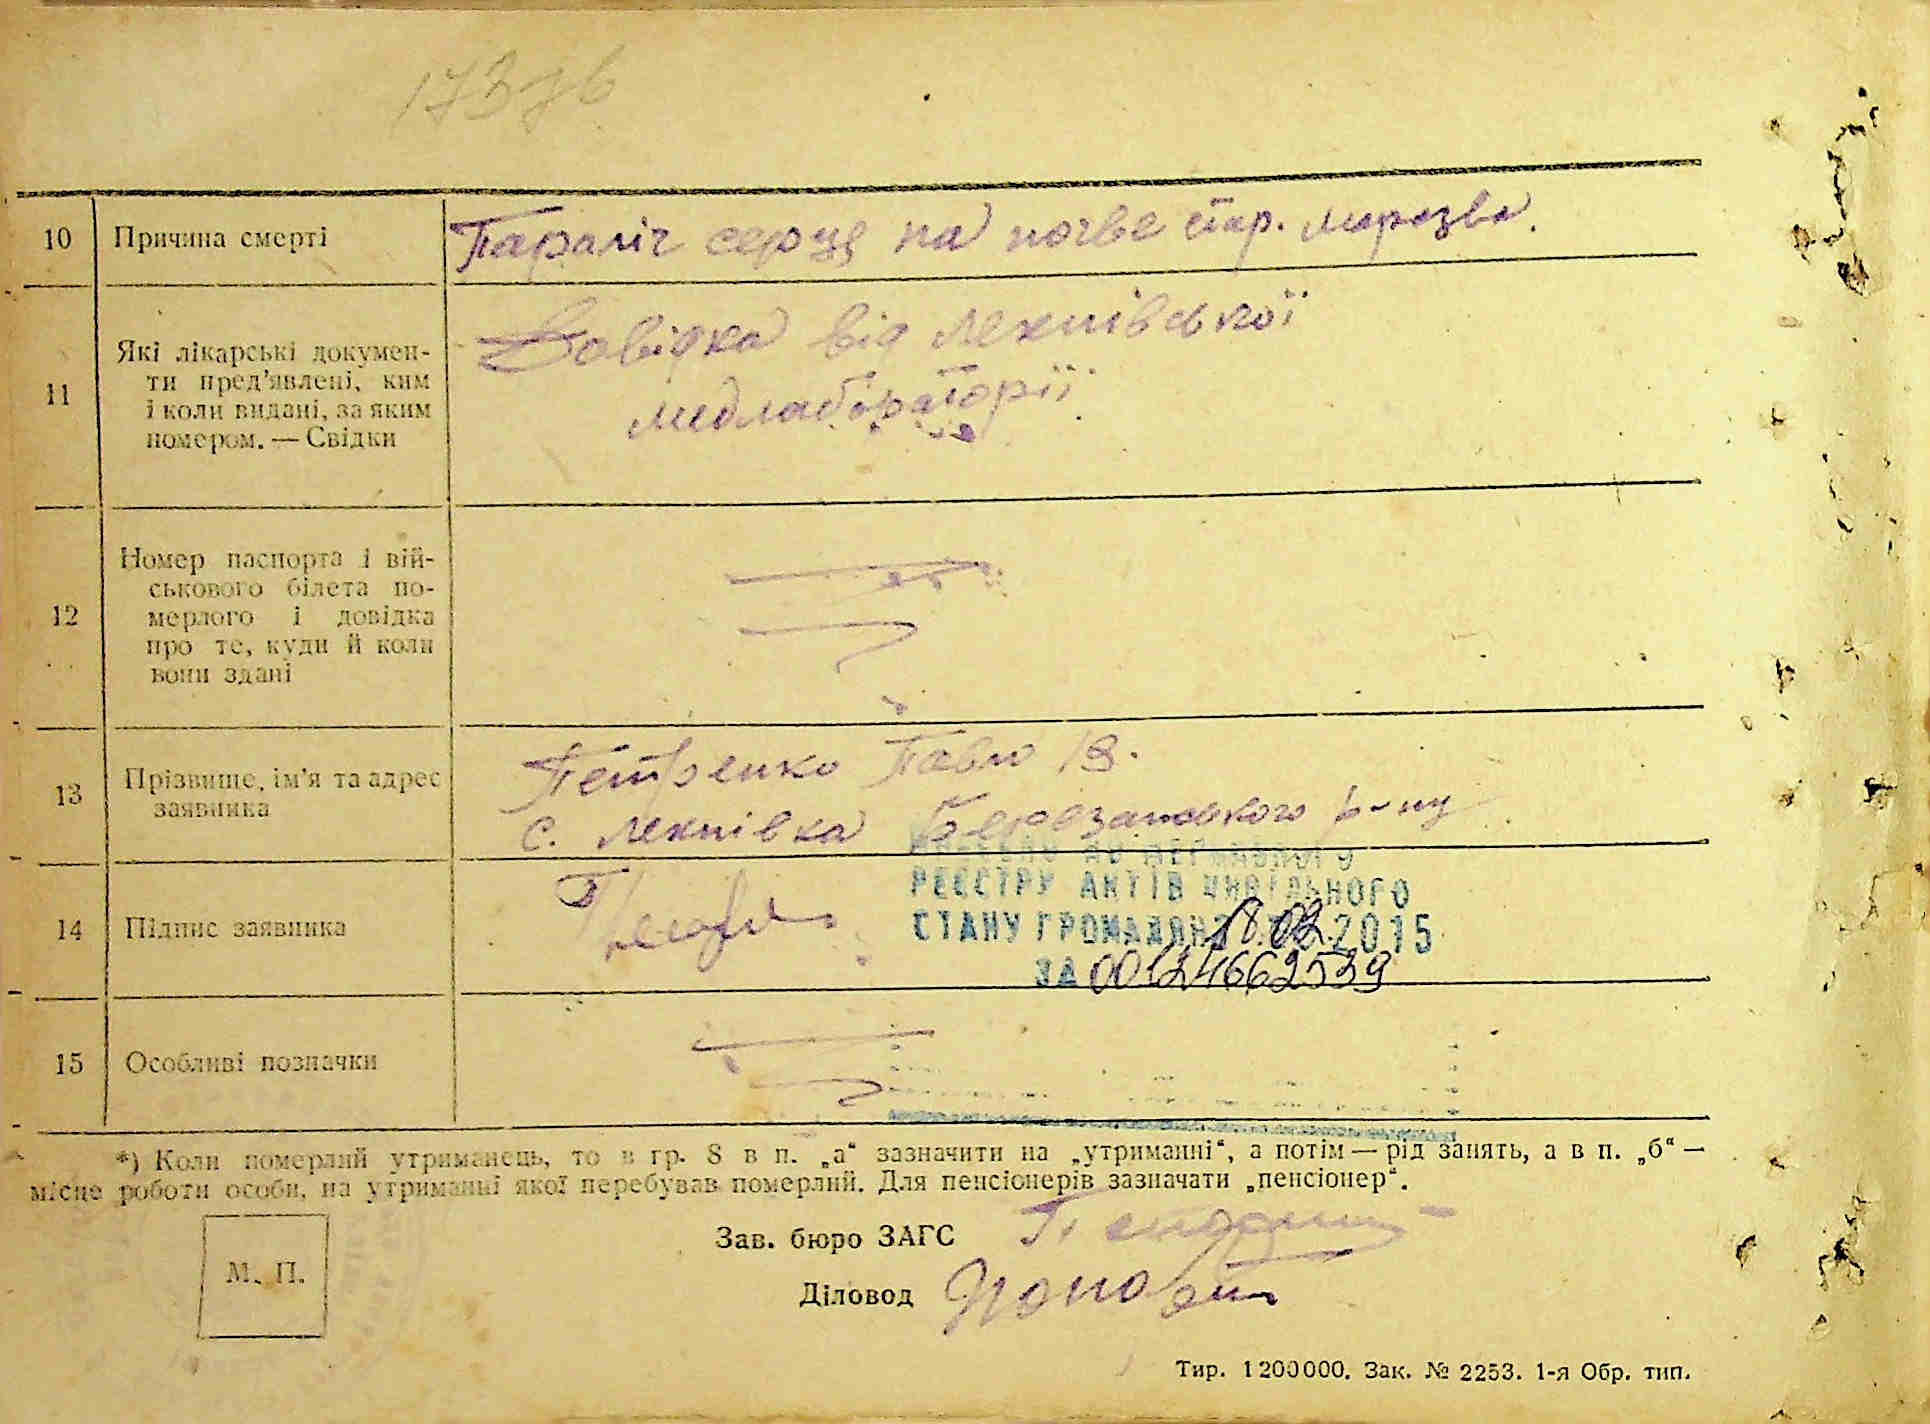 17376
10 Причина смерті Параліч серця на почве стар. маразва.
11 Які лікарські докумен-
ти пред'явлені, ким
і коли видані, за яким
номером. — Свідки
Довідка від Лехнівської
медлабораторії
12 Номер паспорта і вій-
ськового білета по-
мерлого і довідка
про те, куди й коли
вони здані
13 Прізвище, ім'я та адрес
заявника
Петренко Павло В.
с. Лехнівка Березанського р-ну
ДЕРЖАВНОГО
РЕЄСТРУ АКТІВ ЦИВІЛЬНОГО
14 Підпис заявника
СТАНУ ГРОМАДЯН 18.02.2015
ЗА 00124662539
15 Особливі позначки
*) Коли померлий утриманець, то в гр. 8 в п. „а“ зазначити на „утриманні“, а потім — рід занять, а в п. „б“ —
місце роботи особи, на утриманні якої перебував померлий. Для пенсіонерів зазначати „пенсіонер“.
М. П.
Зав. бюро ЗАГС
Діловод
Тир. 1200000. Зак. № 2253. 1-я Обр. тип.